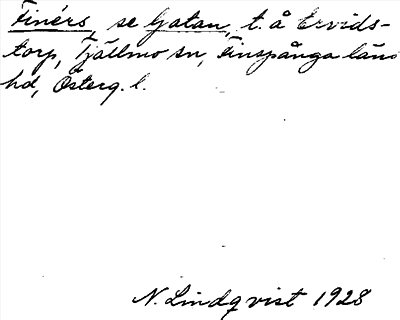 Finérs, se Gatan, t. å Arvids-
torp, Tjällmo sn, Finspånga läns
hd, Österg. l.
N. Lindqvist 1928